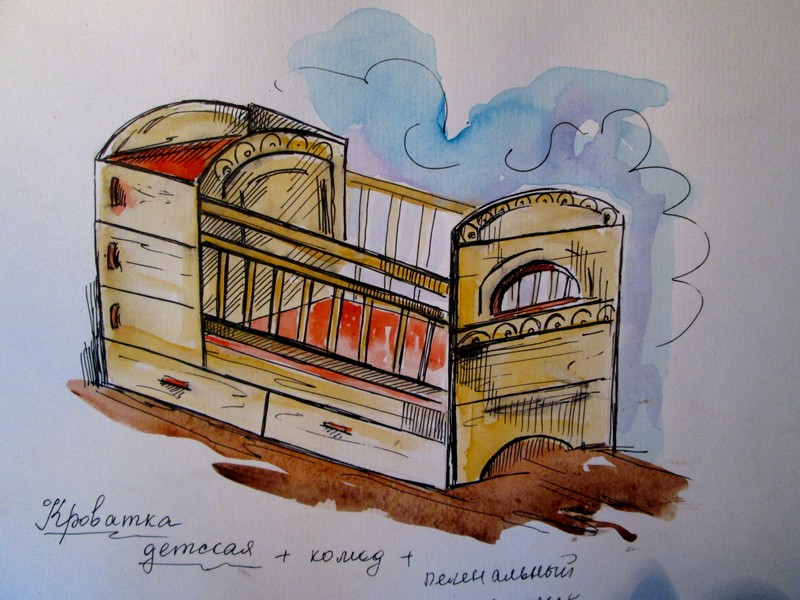 Кроватка
детская + комод +
пеленальный